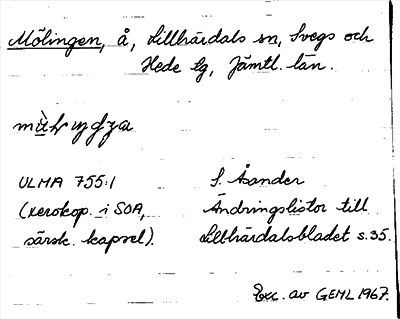 Mölingen, å, Lillhärdals sn, Svegs och
Hede tg, Jämtl. län.
ULMA 755:1
S. Åsander
(xerokop. i SOA,
Ändringslistor till
särsk. kapsel).
Lillhärdalsbladet s.35.
Exc. av GEML 1967.